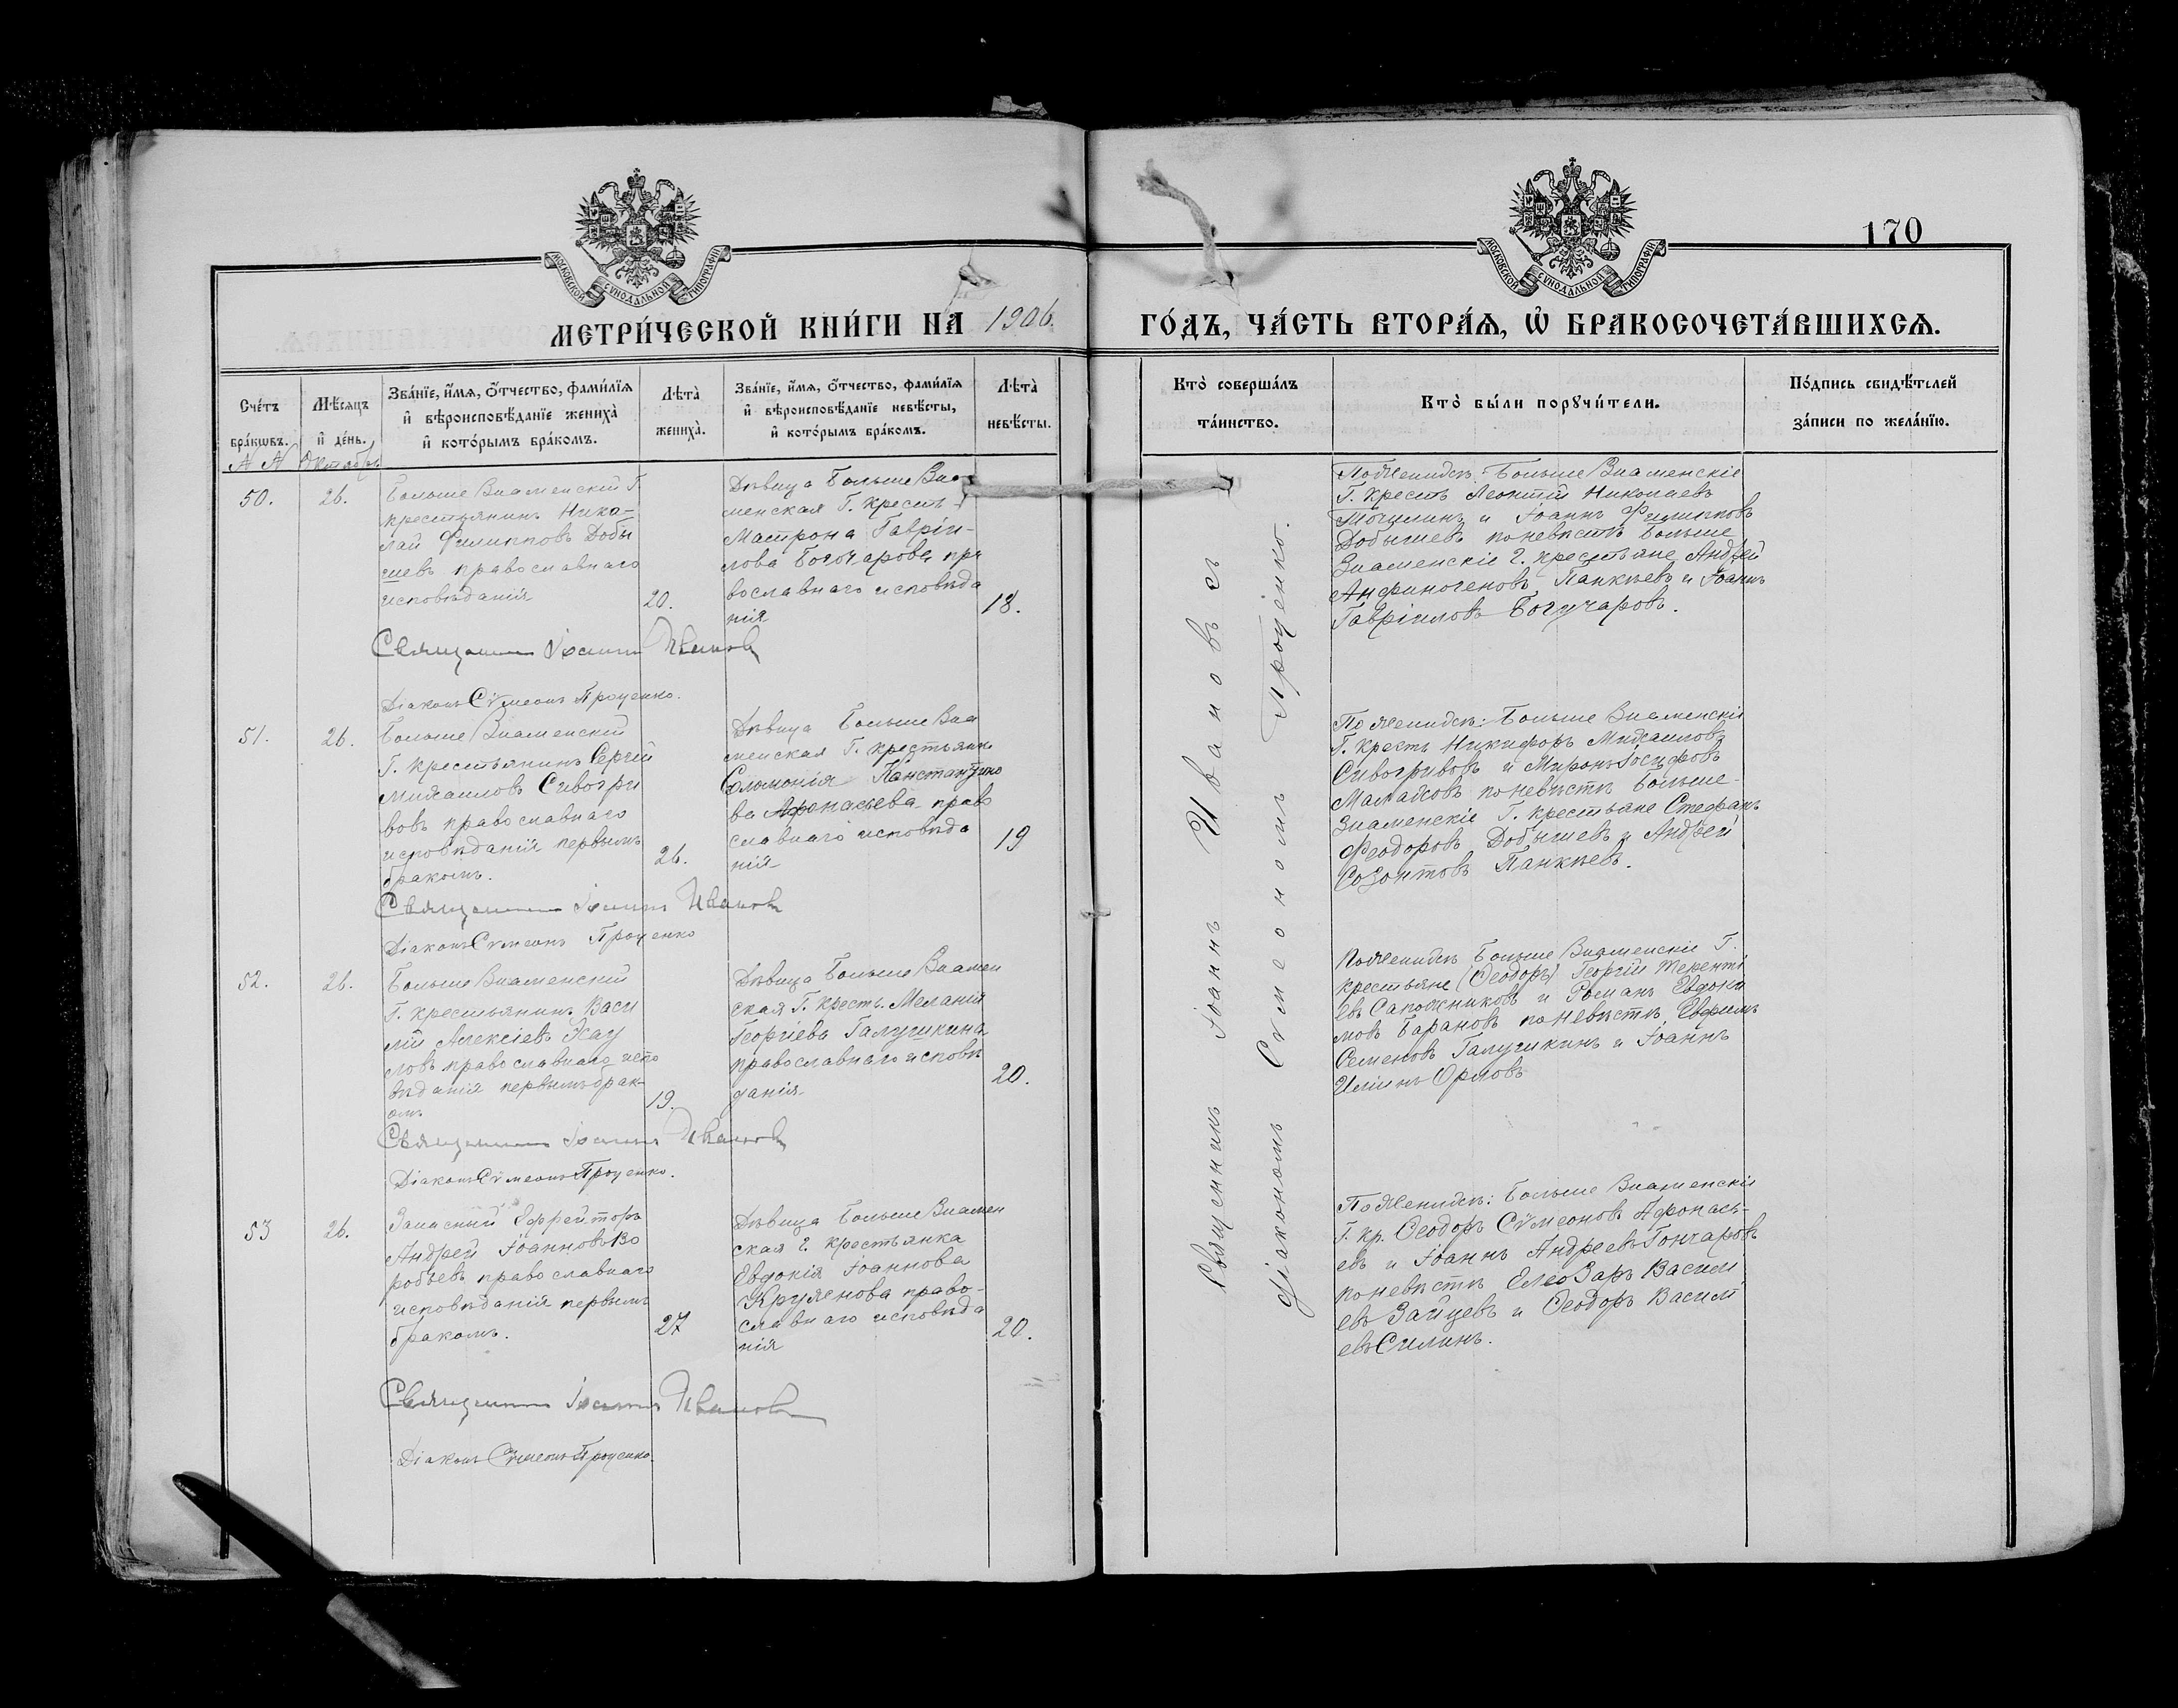 170
МОСКОВСКОЙ СѴНОДАЛЬНОЙ ТИПОГРАФІИ
МОСКОВСКОЙ СѴНОДАЛЬНОЙ ТИПОГРАФІИ
МЕТРИ́ЧЕСКОЙ КНИ́ГИ НА 1906.
ГО́ДЪ, ЧА́СТЬ ВТОРА́Я, Ѡ҆ БРАКОСОЧЕТА́ВШИХСѦ.
Сче́тъ
бра́кѡвъ.
Мѣ́сяцъ
и҆ де́нь.
Зва́нїе, и҆́мѧ, ѻ҆́тчество, фами́лїѧ
и҆ вѣроисповѣ́данїе жениха̀
и҆ кото́рымъ бра́комъ.
Лѣта̀
жениха̀.
Зва́нїе, и҆́мѧ, ѻ҆́тчество, фами́лїѧ
и҆ вѣроисповѣ́данїе невѣ́сты,
и҆ кото́рымъ бра́комъ.
Лѣта̀
невѣ́сты.
Кто̀ соверша́лъ
та́инство.
Кто̀ бы́ли порꙋчи́тели.
По́дпись свидѣ́телей
за́писи по жела́нїю.
Октябрь
50.
26.
Больше Знаменскій Г.
крестьянинъ Нико-
лай Филипповъ Добы
шевъ православнаго
исповѣданія
20.
Дѣвица Больше Зна
менская Г. крест.
Матрона Гавріи-
лова Богочарова пра
вославнаго исповѣда
нія
18.
По женихѣ: Больше Знаменскіе
Г. крест. Леонтій Николаевъ
и Іоаннъ Филипповъ
Добышевъ по невѣстѣ Больше
Знаменскіе Г. крестьяне Андрей
Анфиногеновъ Панкѣевъ и Іоаннъ
Гавріиловъ Богучаровъ.
Священникъ Іоаннъ Ивановъ
Діаконъ Сѵмеонъ Проценко.
51.
26.
Больше Знаменскій
Г. крестьянинъ Сергій
Михаиловъ Сивогри
вовъ православнаго
исповѣданія первымъ
бракомъ.
26.
Дѣвица Больше Зна
менская Г. крестьянк
Соломонія Констатіно
ва Афонасьева право
славнаго исповѣда
нія
19
По женихѣ: Больше Знаменскіе
Г. крест. Никифоръ Михаиловъ
Сивогривовъ и Миронъ Іосифовъ
по невѣстѣ Больше-
Знаменскіе Г. крестьяне Стефанъ
Феодоровъ Добышевъ и Андрей
Созонтовъ Панкѣевъ.
Священникъ Іоаннъ Ивановъ
Діаконъ Сѵмеонъ Проценко
52.
26.
Больше Знаменскій
Г. крестьянинъ Васи
лій Алексіевъ Эсау
ловъ православнаго испо
вѣданія первымъ брак-
омъ
19.
Дѣвица Больше Знамен
ская Г. крест. Меланія
Георгіева Галушкина
православнаго исповѣ
данія
20.
По женихѣ Больше Знаменскіе Г.
крестьяне (Ѳеодоръ) Георгій Теренті
евъ Сапожниковъ и Романъ Евдоки
мовъ Барановъ по невѣстѣ Ефимъ
Семеновъ Галушкинъ и Іоаннъ
Иліинъ Орловъ
Священникъ Іоаннъ Ивановъ
Діаконъ Сѵмеонъ Проценко.
53
26.
Запасный Ефрейторъ
Андрей Іоанновъ Во
робьевъ православнаго
исповѣданія первымъ
бракомъ.
27
Дѣвица Больше Знамен
ская г. крестьянка
Евдокія Іоаннова
Кружнова право-
славнаго исповѣда
нія
20.
По женихѣ: Больше Знаменскіе
Г. кр. Ѳеодоръ Сѵмеоновъ Афонась-
евъ и Іоаннъ Андреевъ Гончаровъ
по невѣстѣ Елеозаръ Васил
евъ Зайцевъ и Ѳеодоръ Василі
евъ Силинъ.
Священникъ Іоаннъ Ивановъ
Діаконъ Сѵмеонъ Проценко.
Священникъ Іоаннъ Ивановъ съ
діакономъ Сѵмеономъ Проценко.